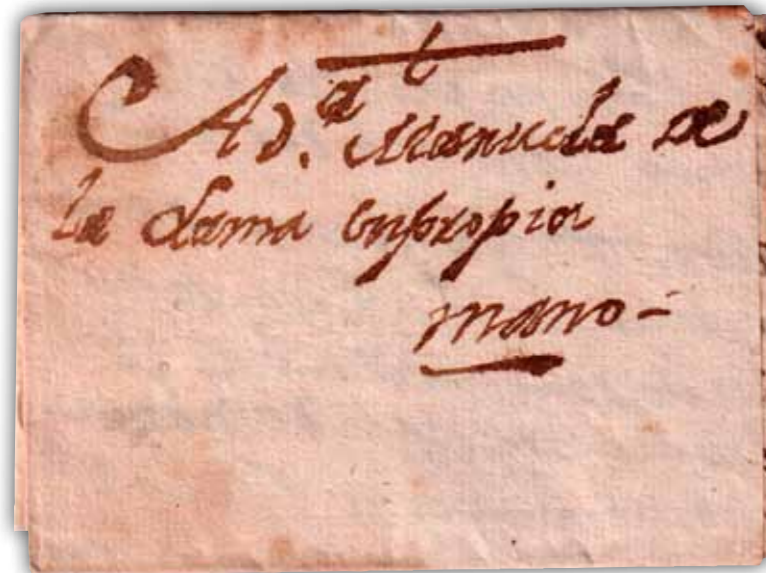 A D.ª Manuela de
la Lama en propia
mano-